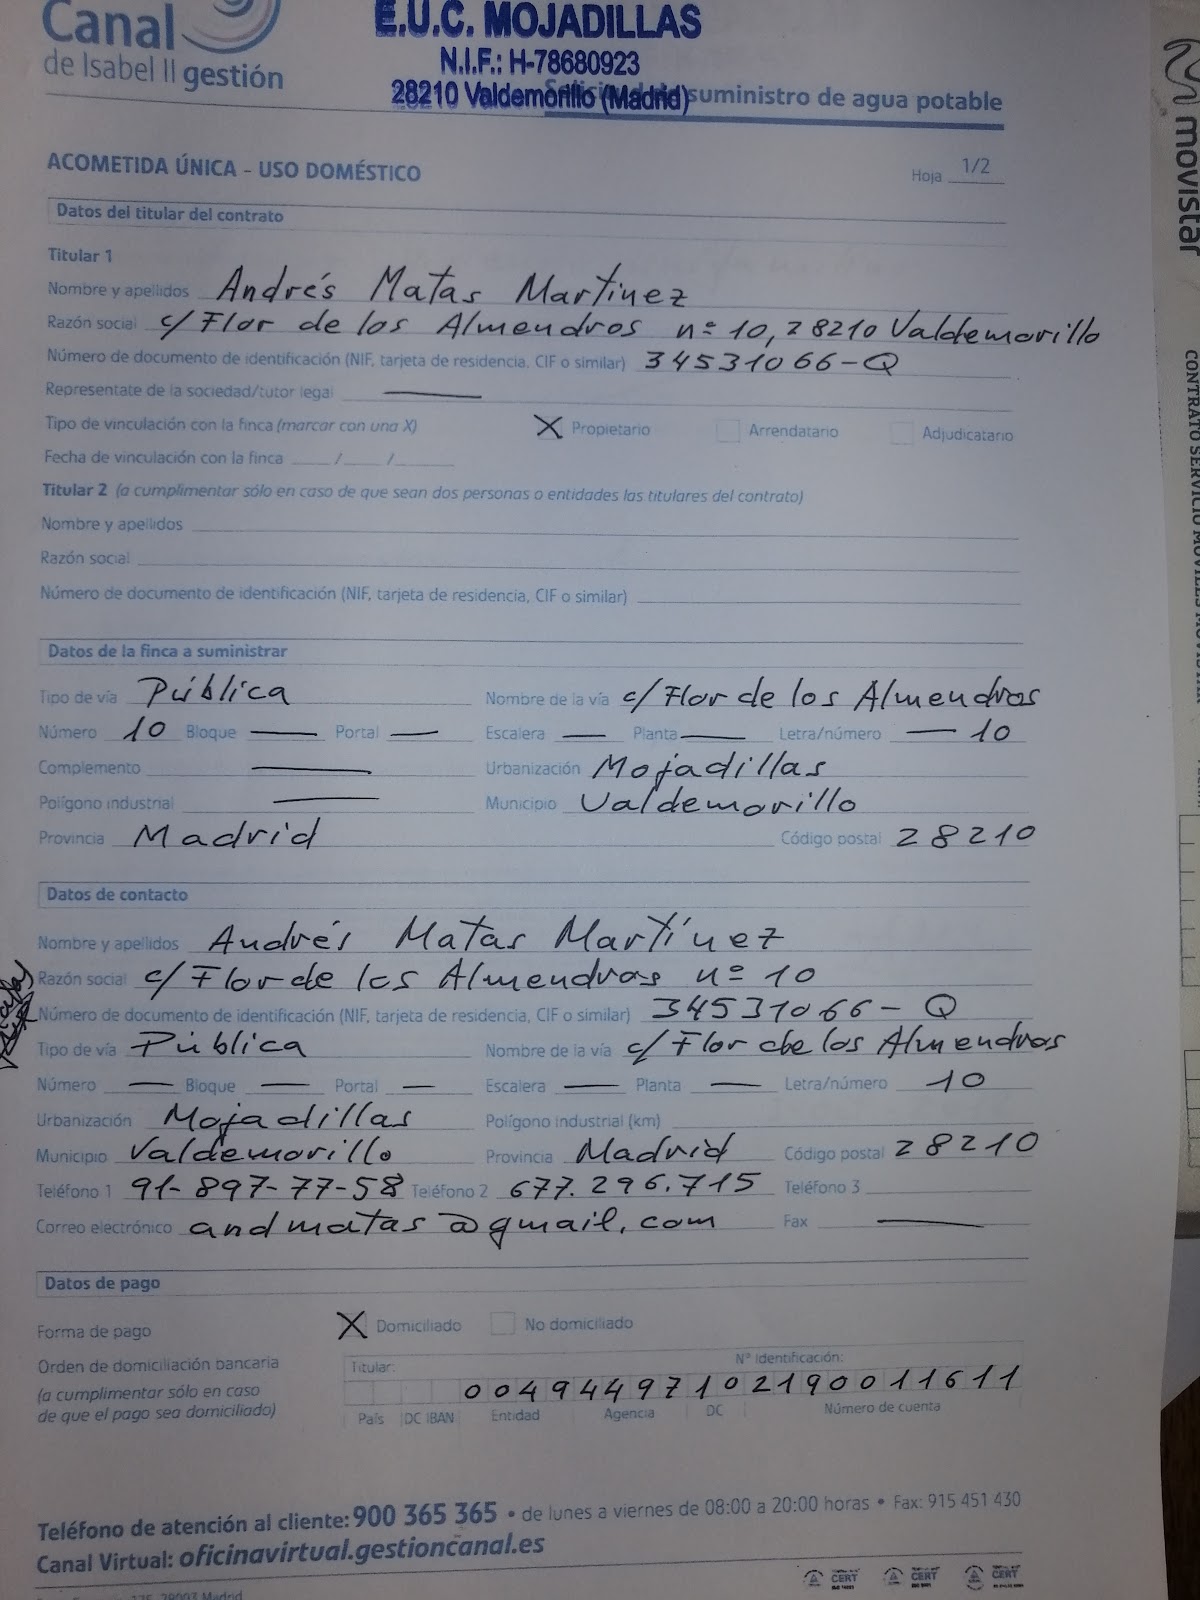 Canal
de Isabel II gestión
E.U.C. MOJADILLAS
N.I.F.: H-78680923
28210 Valdemorillo (Madrid)
suministro de agua potable
ACOMETIDA ÚNICA - USO DOMÉSTICO
Hoja 1/2
Datos del titular del contrato
Titular 1
Nombre y apellidos Andrés Matas Martinez
Razón social c/ Flor de los Almendros nº 10, 28210 Valdemorillo
Número de documento de identificación (NIF, tarjeta de residencia, CIF o similar) 34531066-Q
Representate de la sociedad/tutor legal
Tipo de vinculación con la finca (marcar con una X) X Propietario Arrendatario Adjudicatario
Fecha de vinculación con la finca / /
Titular 2 (a cumplimentar sólo en caso de que sean dos personas o entidades las titulares del contrato)
Nombre y apellidos
Razón social
Número de documento de identificación (NIF, tarjeta de residencia, CIF o similar)
Datos de la finca a suministrar
Tipo de vía Pública Nombre de la vía c/ Flor de los Almendros
Número 10 Bloque — Portal — Escalera — Planta — Letra/número — 10
Complemento — Urbanización Mojadillas
Polígono industrial — Municipio Valdemorillo
Provincia Madrid Código postal 28210
Datos de contacto
Nombre y apellidos Andrés Matas Martínez
Razón social c/ Flor de los Almendros nº 10
Número de documento de identificación (NIF, tarjeta de residencia, CIF o similar) 34531066-Q
Tipo de vía Pública Nombre de la vía c/ Flor de los Almendros
Número — Bloque — Portal — Escalera — Planta — Letra/número 10
Urbanización Mojadillas Polígono industrial (km)
Municipio Valdemorillo Provincia Madrid Código postal 28210
Teléfono 1 91-897-77-58 Teléfono 2 677.296.715 Teléfono 3
Correo electrónico andmatas@gmail.com Fax —
Datos de pago
Forma de pago X Domiciliado No domiciliado
Orden de domiciliación bancaria
(a cumplimentar sólo en caso
de que el pago sea domiciliado)
Titular: Nº Identificación:
00494497102190011611
País DC IBAN Entidad Agencia DC Número de cuenta
Teléfono de atención al cliente: 900 365 365 • de lunes a viernes de 08:00 a 20:00 horas • Fax: 915 451 430
Canal Virtual: oficinavirtual.gestioncanal.es
CERT CERT CERT
movistar